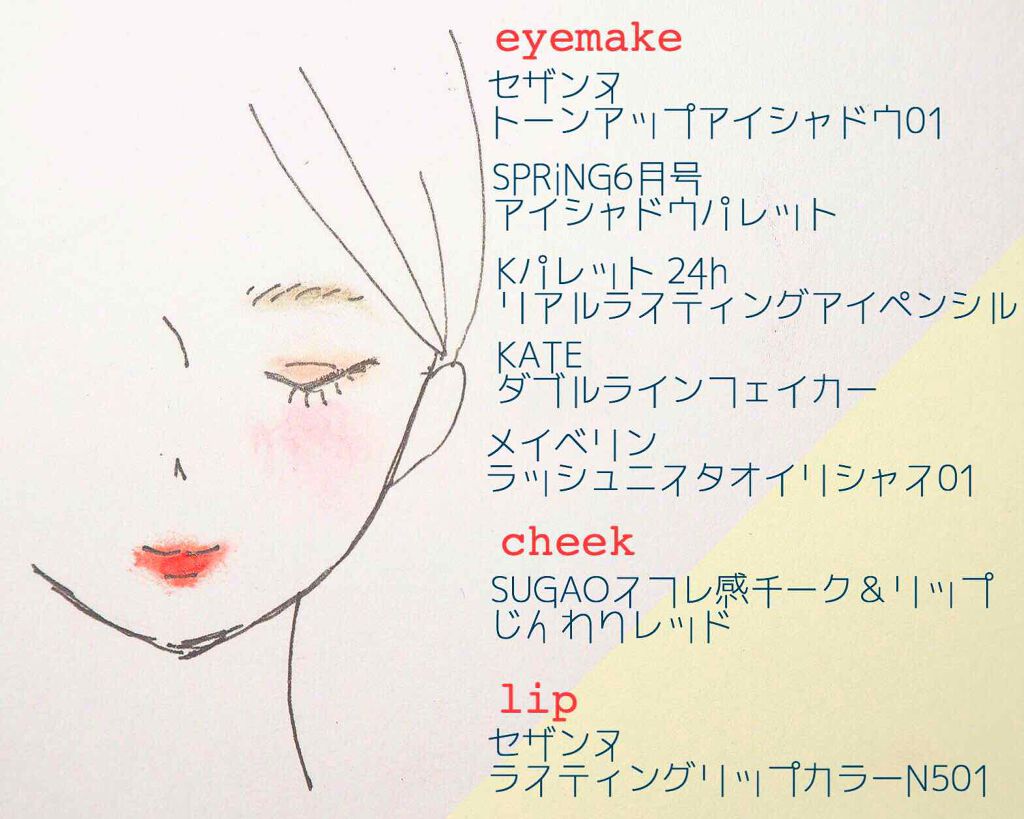 eyemake
セザンヌ
トーンアップアイシャドウ01
SPRiNG6月号
アイシャドウパレット
Kパレット 24h
リアルラスティングアイペンシル
KATE
ダブルラインフェイカー
メイベリン
ラッシュニスタオイリシャス01
cheek
SUGAOスフレ感チーク＆リップ
じんわりレッド
lip
セザンヌ
ラスティングリップカラーN501